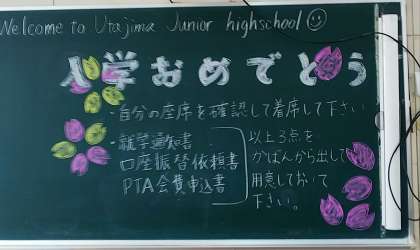 Welcome to Utajima Junior highschool
入学おめでとう
・自分の座席を確認して着席して下さい
・就学通知書
口座振替依頼書
PTA会費申込書
以上3点を
かばんから出して
用意しておいて
下さい。